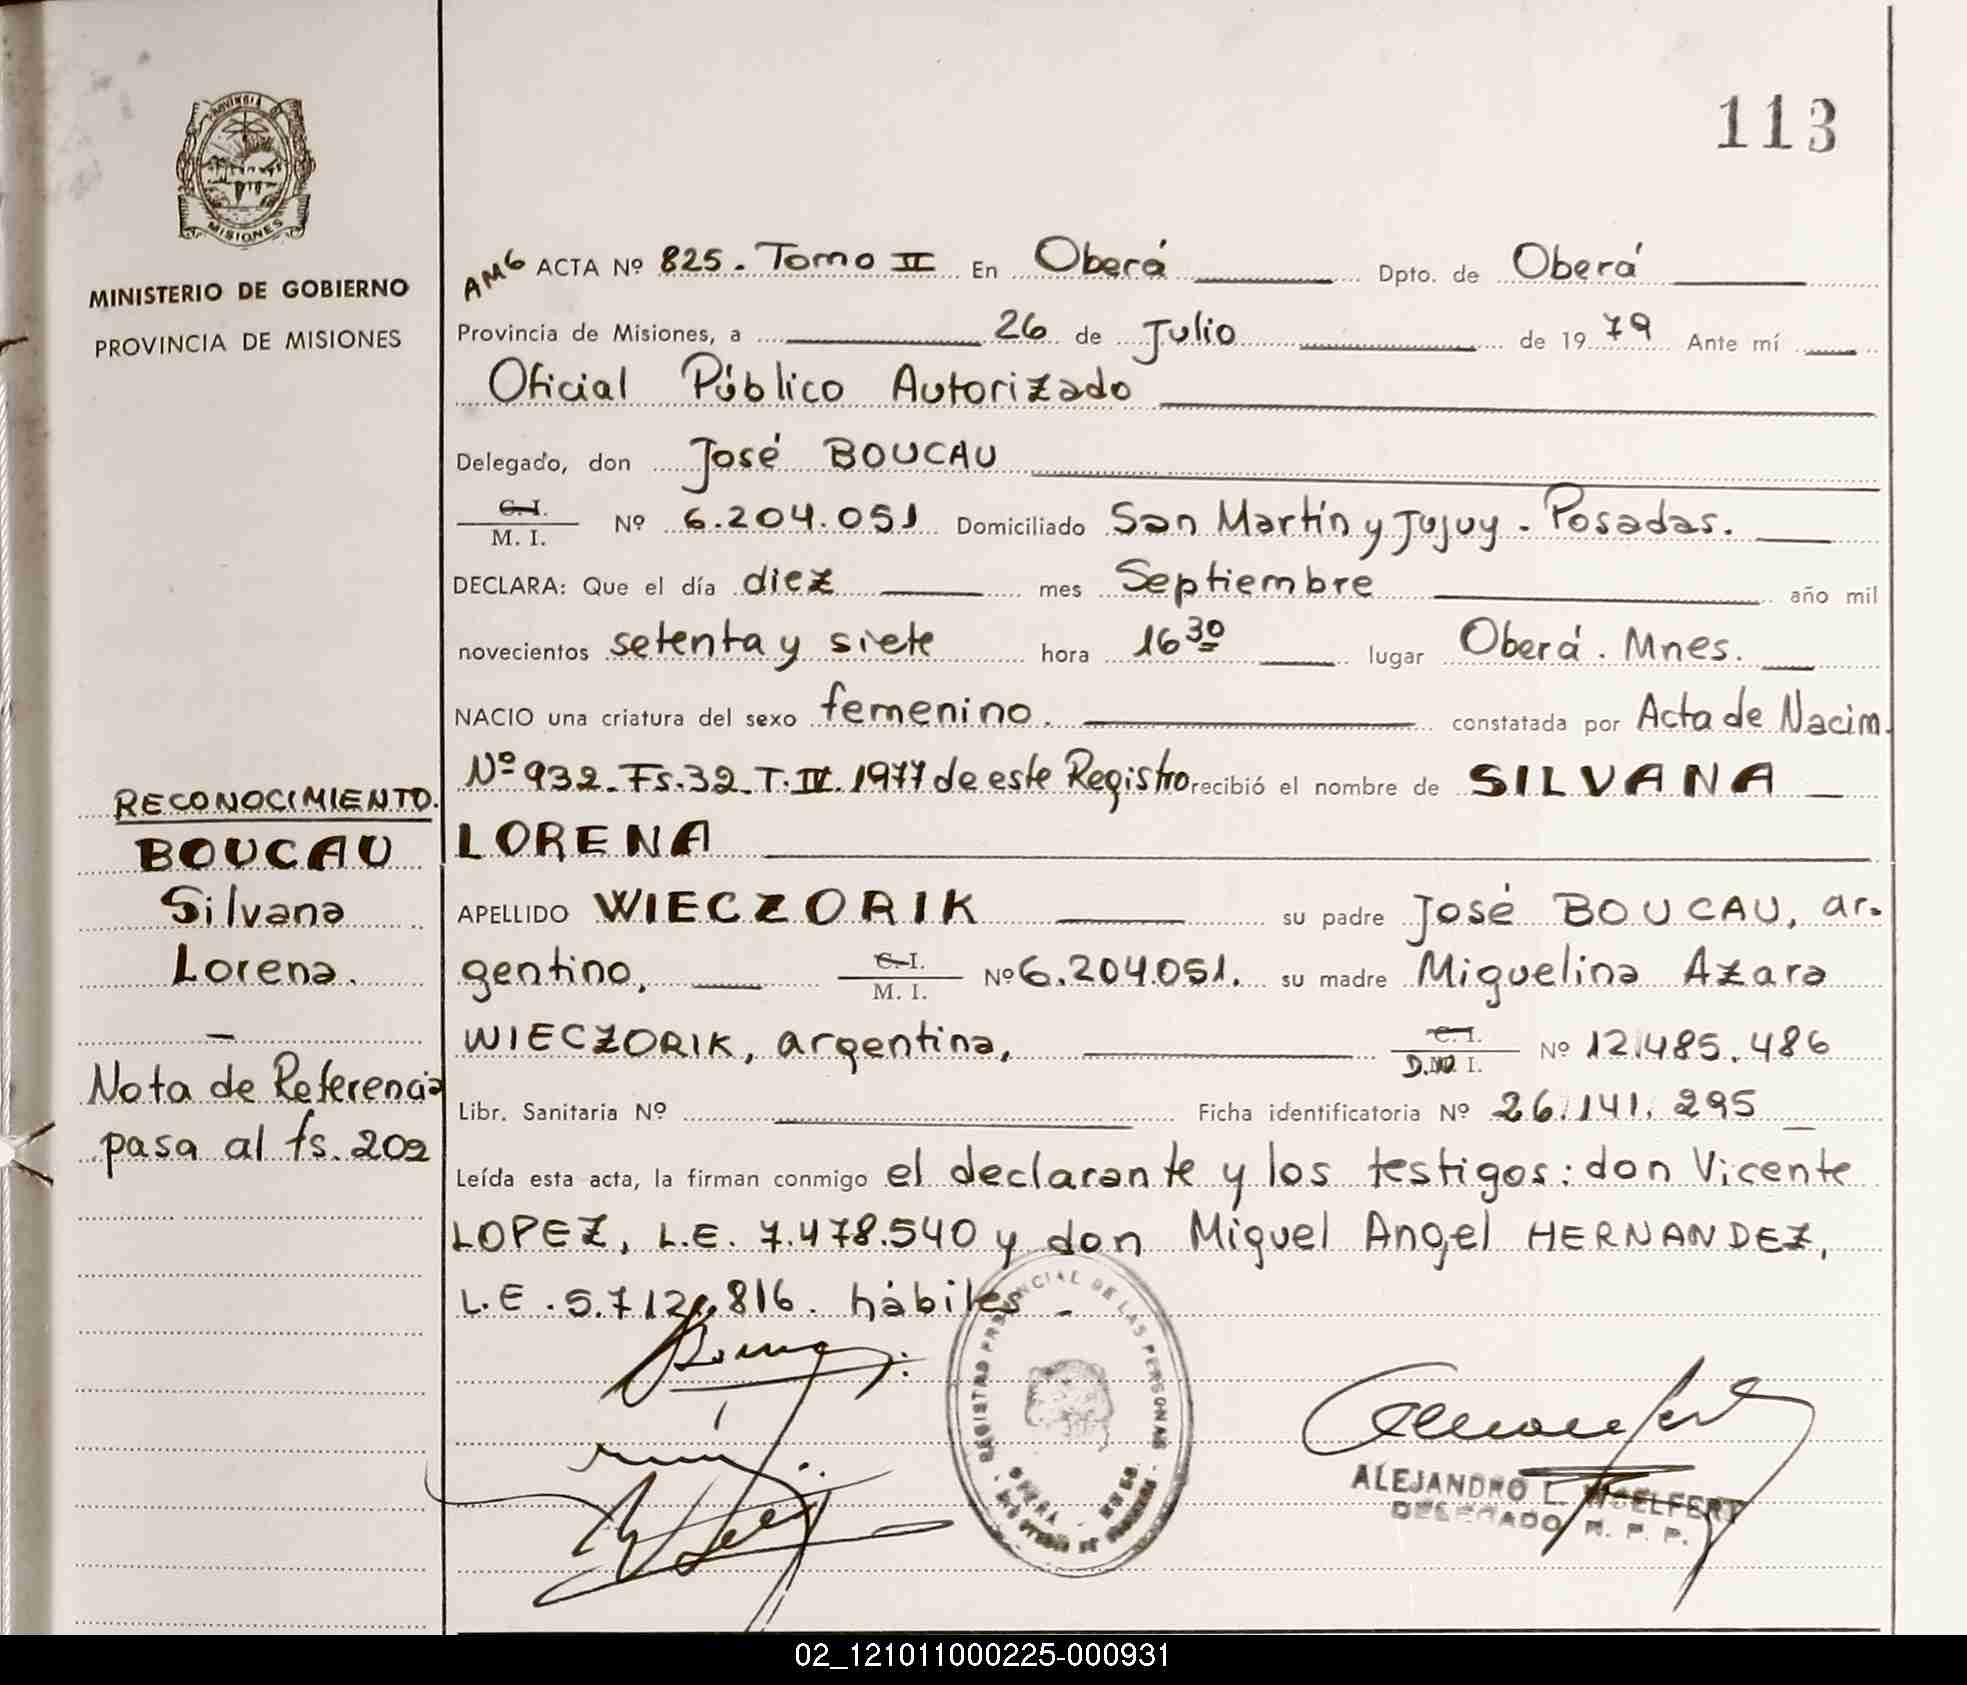 113
PROVINCIA DE
MISIONES
MINISTERIO DE GOBIERNO
PROVINCIA DE MISIONES
AMG ACTA Nº 825. Tomo II En Oberá Dpto. de Oberá
Provincia de Misiones, a 26 de Julio de 1979 Ante mí
Oficial Público Autorizado
Delegado, don José BOUCAU
C.I.
M. I. Nº 6.204.051 Domiciliado San Martín y Jujuy - Posadas.
DECLARA: Que el día diez mes Septiembre año mil
novecientos setenta y siete hora 16 30 lugar Oberá. Mnes.
NACIO una criatura del sexo femenino. constatada por Acta de Nacim.
Nº 932. Fs. 32. T. IV. 1977 de este Registro recibió el nombre de SILVANA
LORENA
APELLIDO WIECZORIK su padre José BOUCAU, ar-
gentino, C.I. M. I. Nº 6.204.051. su madre Miguelina Azara
WIECZORIK, argentina, C.I. D.N. I. Nº 12.485.486
Libr. Sanitaria Nº Ficha identificatoria Nº 26.141.295
Leída esta acta, la firman conmigo el declarante y los testigos: don Vicente
LOPEZ, L.E. 7.478.540 y don Miguel Angel HERNANDEZ,
L.E. 5.712.816. hábiles -
RECONOCIMIENTO.
BOUCAU
Silvana
Lorena.
Nota de Referencia
pasa al fs. 202
REGISTRO PROVINCIAL DE LAS PERSONAS
OBERA
ALEJANDRO L. WOELFERT
DELEGADO R. P. P.
02_121011000225-000931